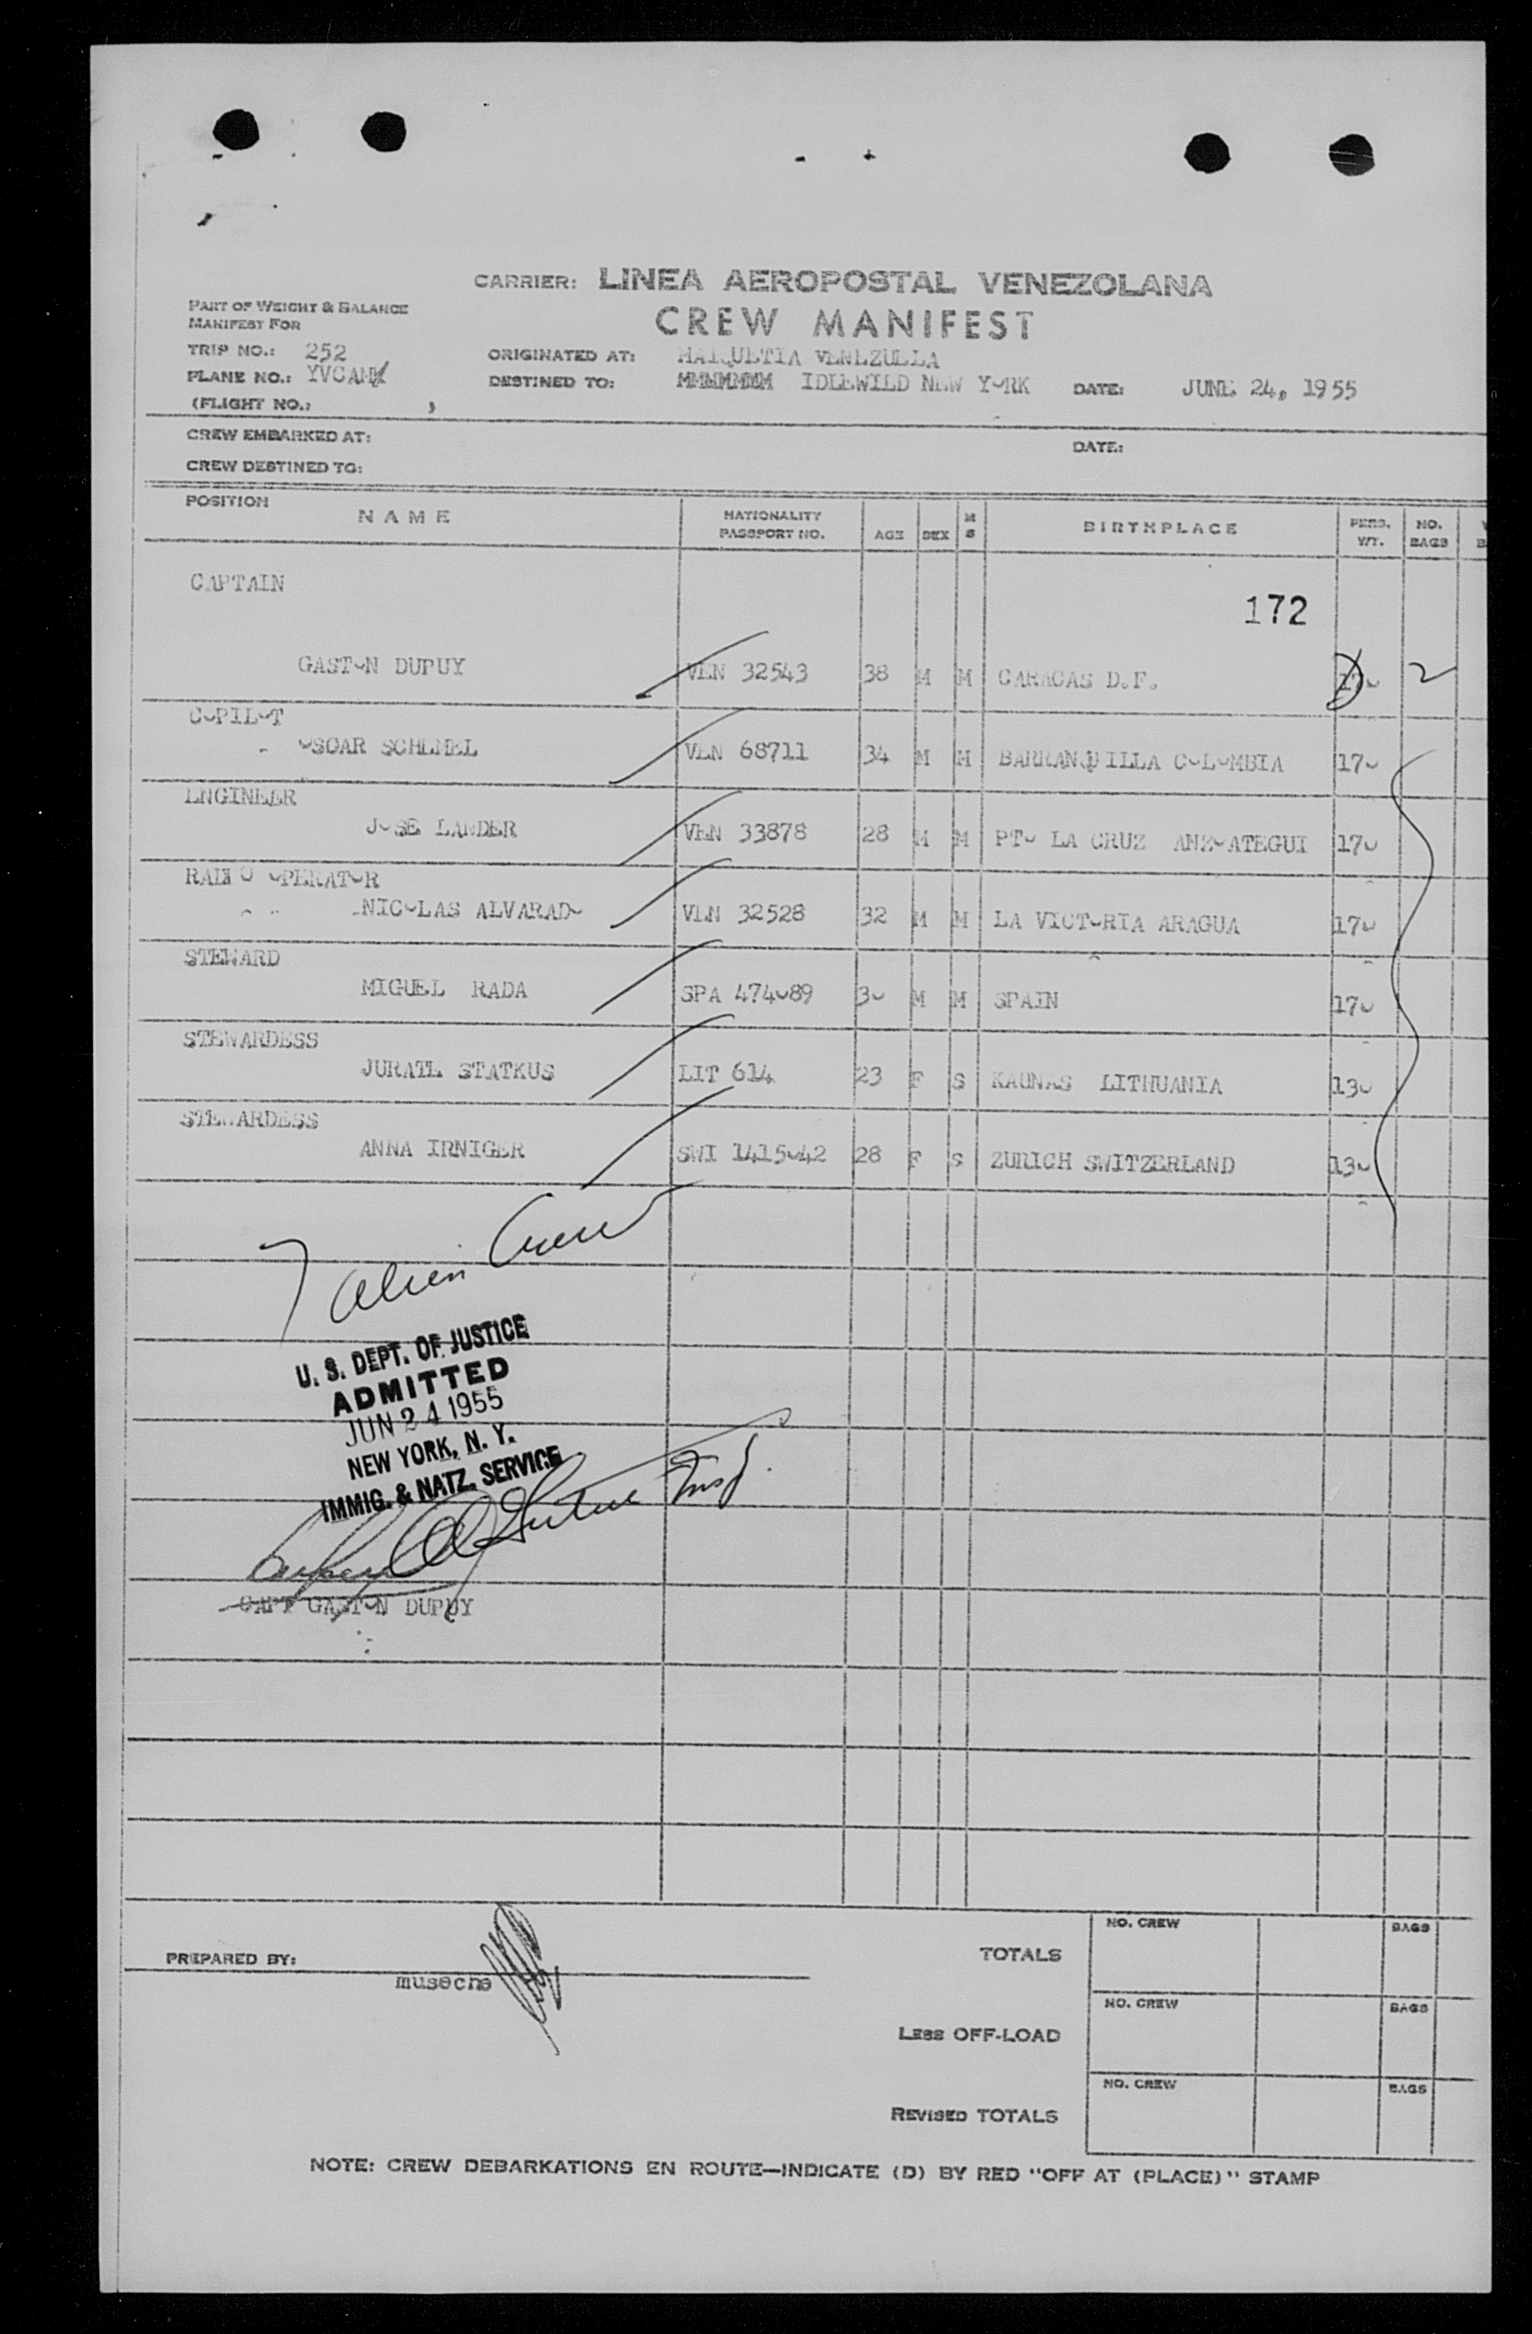 CARRIER: LINEA AEROPOSTAL VENEZOLANA
CREW MANIFEST
PART OF WEIGHT & BALANCE
MANIFEST FOR
TRIP NO.: 252 ORIGINATED AT: MAIQUETIA VENEZUELA
PLANE NO.: YVCAM DESTINED TO: IDLEWILD NEW YORK DATE: JUNE 24, 1955
(FLIGHT NO.: )
CREW EMBARKED AT: DATE:
CREW DESTINED TO:
POSITION NAME NATIONALITY PASSPORT NO. AGE SEX M S BIRTHPLACE PERS. WT. NO. BAGS
CAPTAIN
172
GASTON DUPUY VEN 32543 38 M M CARACAS D.F. 170 2
COPILOT
OSCAR SCHEMEL VEN 68711 34 M M BARRANQUILLA COLOMBIA 170
ENGINEER
JOSE LANDER VEN 33878 28 M M PTO LA CRUZ ANZOATEGUI 170
RADIO OPERATOR
NICOLAS ALVARADO VEN 32528 32 M M LA VICTORIA ARAGUA 170
STEWARD
MIGUEL RADA SPA 474089 30 M M SPAIN 170
STEWARDESS
JURATE STATKUS LIT 614 23 F S KAUNAS LITHUANIA 130
STEWARDESS
ANNA IRNIGER SWI 1415042 28 F S ZURICH SWITZERLAND 130
7 alien Crew
U. S. DEPT. OF JUSTICE
ADMITTED
JUN 24 1955
NEW YORK, N. Y.
IMMIG. & NATZ. SERVICE
Insp.
CAPT GASTON DUPUY
NO. CREW BAGS
TOTALS
PREPARED BY:
museche
NO. CREW BAGS
LESS OFF-LOAD
NO. CREW BAGS
REVISED TOTALS
NOTE: CREW DEBARKATIONS EN ROUTE—INDICATE (D) BY RED "OFF AT (PLACE)" STAMP